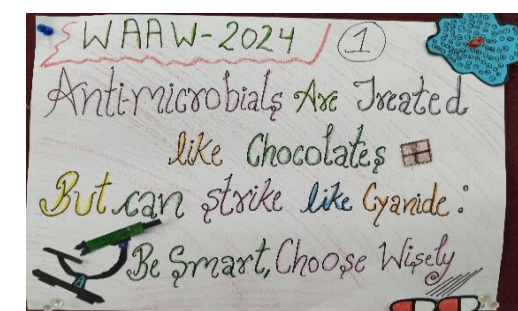 WAAW-2024 1
Anti-microbials Are Treated
like Chocolates
But can strike like Cyanide:
Be Smart, Choose Wisely